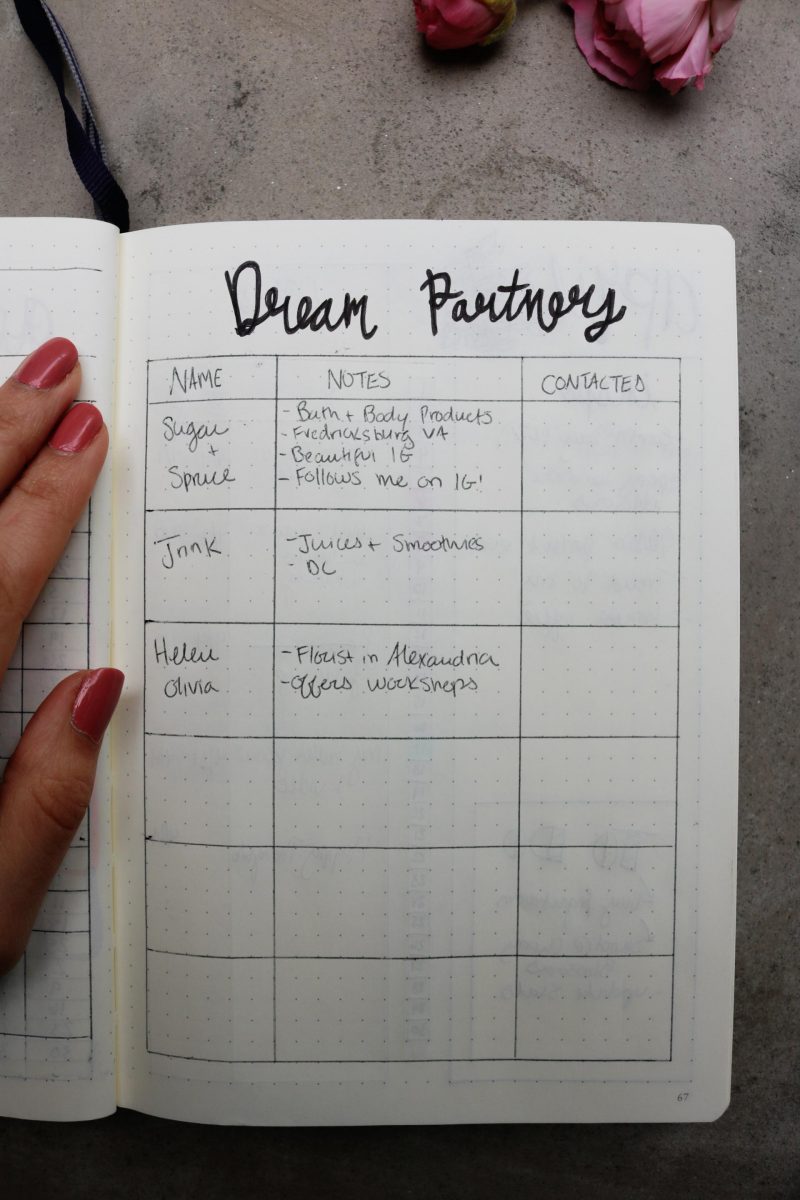 Dream Partners
NAME NOTES CONTACTED
Sugar
+
Spruce
- Bath + Body Products
- Fredricksburg VA
- Beautiful IG
- Follows me on IG!
- Juices + Smoothies
- DC
Helen
Olivia
- Florist in Alexandria
- Offers workshops
67